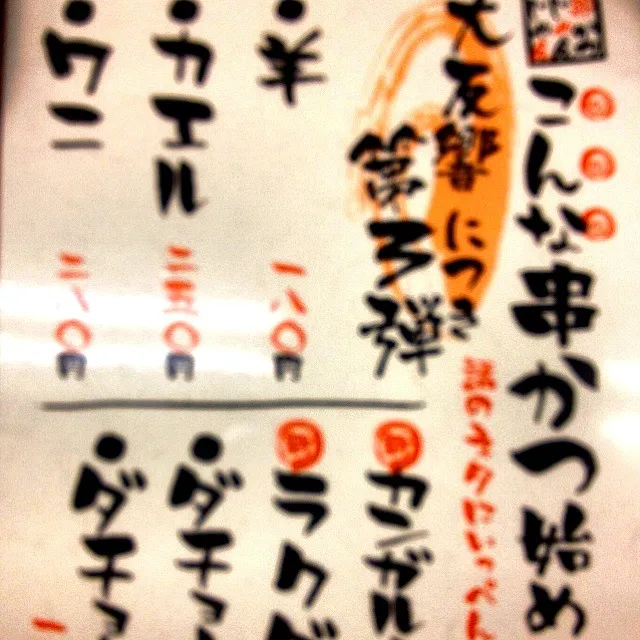 こんな串かつ始め
大反響につき
第3弾
話のネタにいっぺん
羊
一八〇円
カエル
二五〇円
ワニ
二八〇円
カンガル
ラクダ
ダチョ
ダチョ